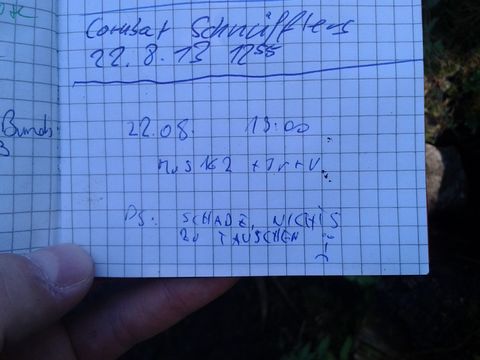 Combat Schnüfflers
22.8.13 1255
22.08. 13:00
+Jr+V
Ps: SCHADE, NICHTS
ZU TAUSCHEN